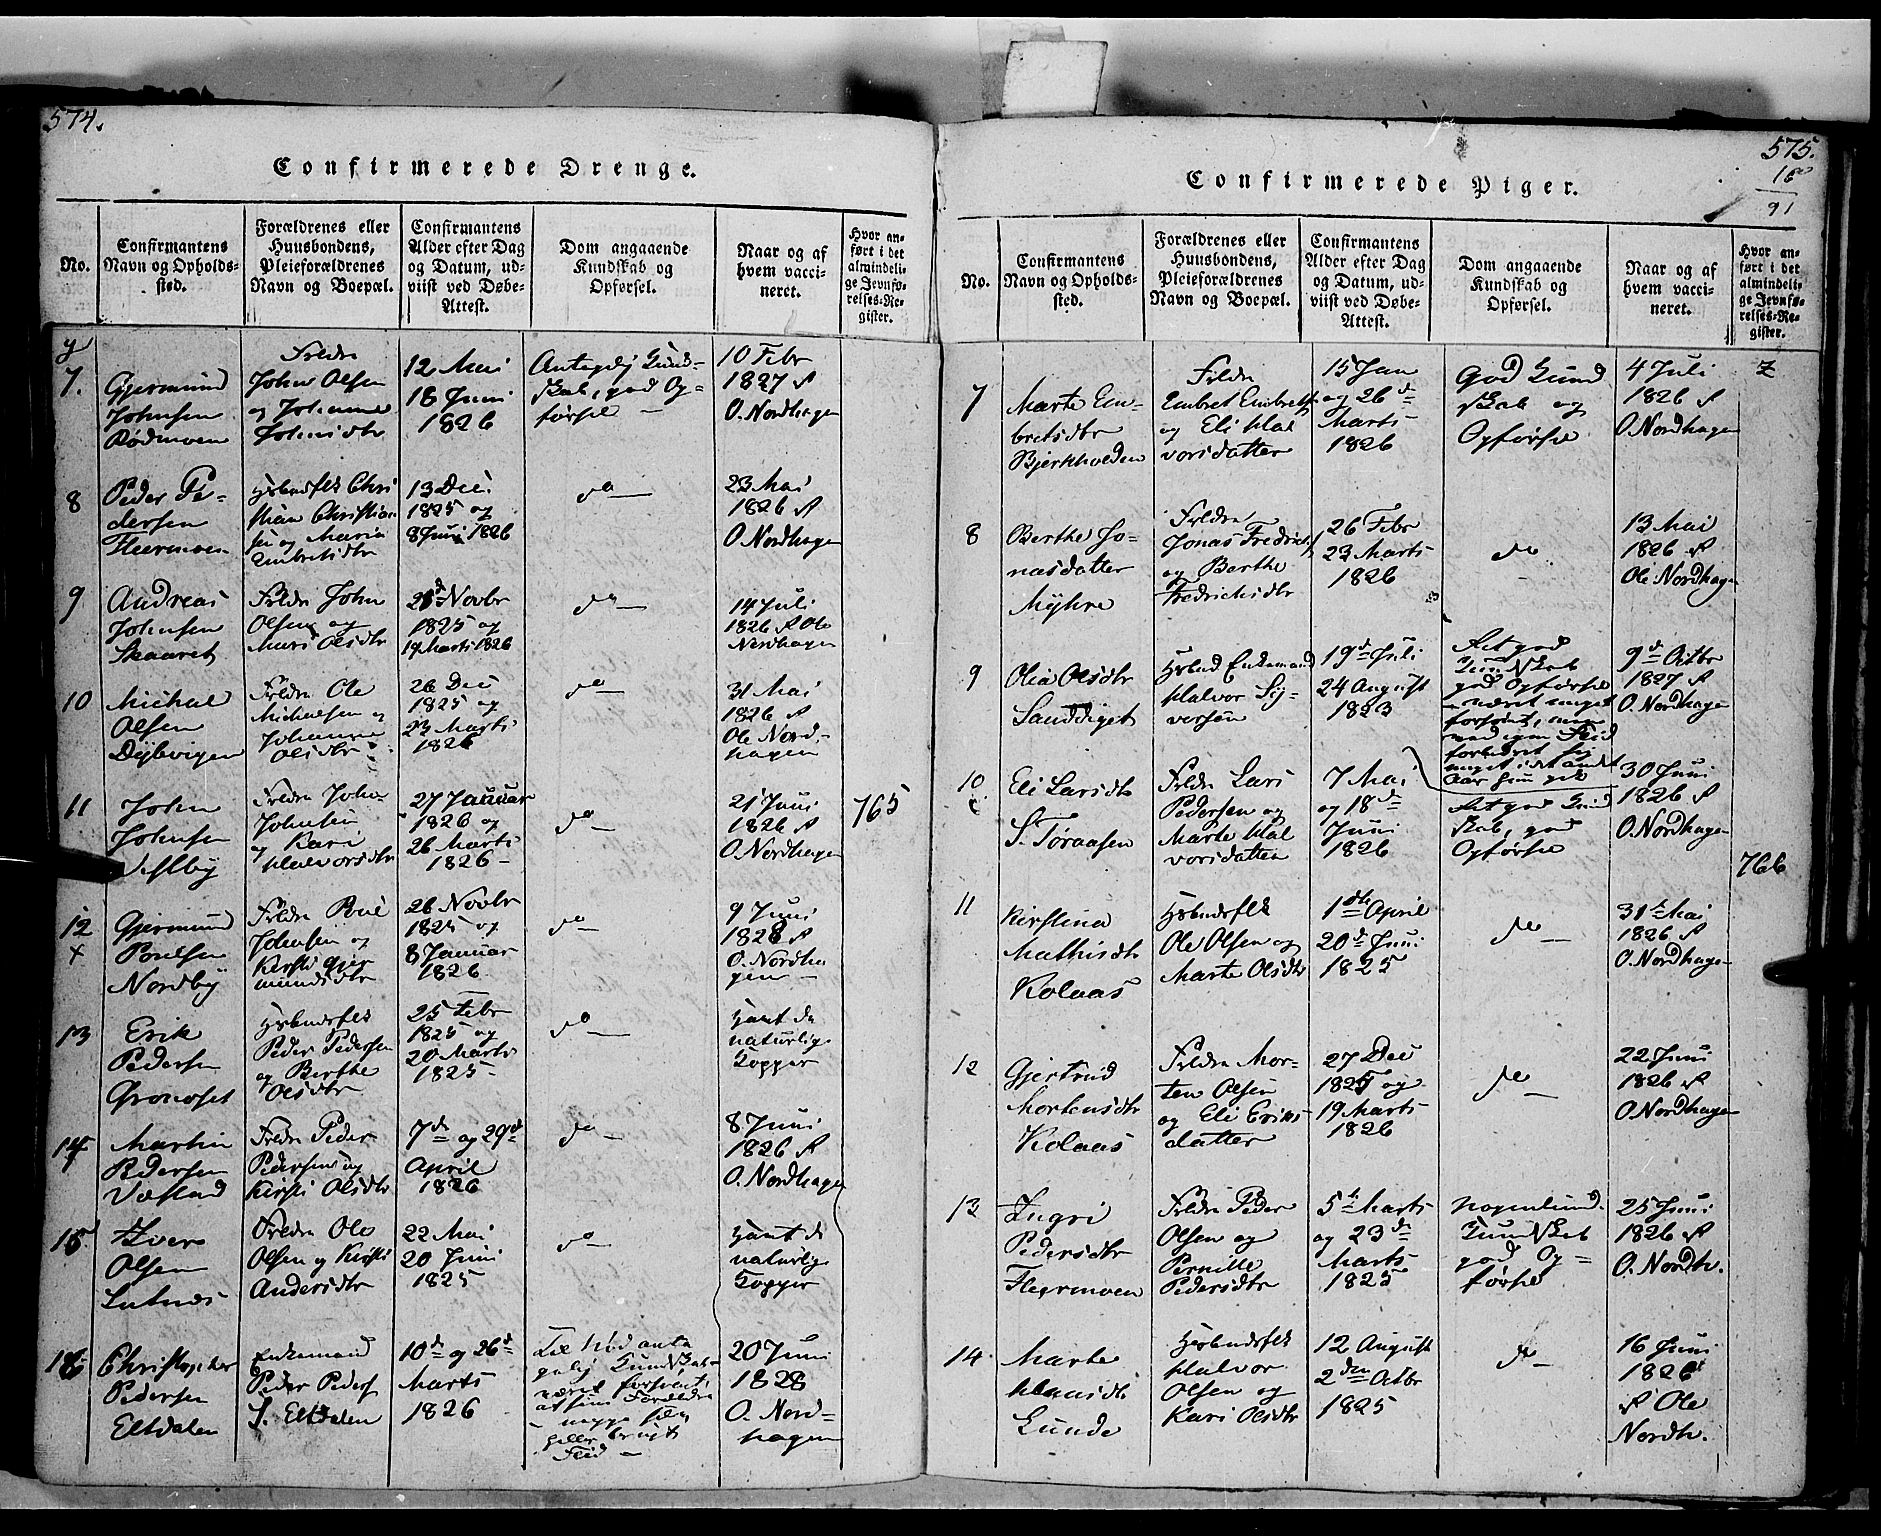 574.
Confirmerede Drenge.
No.
Confirmantens
Navn og Opholds-
sted.
Forældrenes eller
Huusbondens,
Pleieforældrenes
Navn og Boepæl.
Confirmantens
Alder efter Dag
og Datum, ud-
viist ved Døbe-
Attest.
Dom angaaende
Kundskab og
Opførsel.
Naar og af
hvem vacci-
neret.
Hvor an-
ført i det
almindeli-
ge Jevnfø-
relses-Re-
gister.
7.
Gjermund
Johnsen
Rødmoen
Frldre
John Olsen
og Johanne
Johnsdtr
12 Mai
18 Juni
1826
Antagelig Kund-
skab, god Op-
førsel –
10 Febr
1827 af
O. Nordhagen
8
Peder Pe-
dersen
Fleermoen
Hsbndsflk Chri
stian Christian
sen og Maria
Embretsdtr
13 Dec
1825 og
8 Juni 1826
do –
23 Mai
1826 af
O Nordhagen
9
Andreas
Johnsen
Skaaret
Frldre John
Olsen og
Mari Olsdtr
21d Novbr
1825 og
19 Marts 1826
do –
14 Juli
1826 af Ole
Nordhagen
10
Michael
Olsen
Dybvigen
Frldre Ole
Michaelsen og
Johanne
Olsdtr
26 Dec
1825 og
23 Marts
1826
do –
31 Mai
1826 af
Ole Nord-
hagen
11
John
Johnsen
Nesleby
Frldre John
Johnsen
og Kari
Halvorsdtr
27 Januar
1826 og
26 Marts
1826 –
do –
21 Juni
1826 af
O Nordhagen
765
12
x
Gjermund
Poulsen
Nordby
Frldre Poul
Johnsen og
Kirsti Gjer
mundsdtr
26 Novbr
1825 og
8 Januar
1826
do –
9 Juni
1828 af
O. Nordha
gen –
13
Erik
Pedersen
Gronoset
Hsbndsflk
Peder Pedersen
og Berthe
Olsdtr
25 Febr
1825 og
20 Marts
1825
do –
Havt de
naturlige
Kopper
14
Martin
Pedersen
Væstad
Frldre Peder
Pedersen og
Kirsti Olsdtr
7de og 29d
April
1826
do –
8 Juni
1826 af
O. Nordhagen
15
Iver
Olsen
Lutnes
Frldre Ole
Olsen og Kirsti
Andersdtr
22 Mai
20 Juni
1825
do –
Havt de
naturlige
Kopper
16
Christopher
Pedersen
Eltdalen
Enkemand
Peder Peders
S. Eltdalen
10de og 26d
Marts
1826
Til Nød anta
gelig Kundskab
været forsømt
af sine Forældre
–
heller brugt
Flid –
20 Juni
1828
O. Nord-
hagen
575.
16
91
Confirmerede Piger.
No.
Confirmantens
Navn og Opholds-
sted.
Forældrenes eller
Huusbondens,
Pleieforældrenes
Navn og Boepæl.
Confirmantens
Alder efter Dag
og Datum, ud-
viist ved Døbe-
Attest.
Dom angaaende
Kundskab og
Opførsel.
Naar og af
hvem vacci-
neret.
Hvor an-
ført i det
almindeli-
ge Jevnfø-
relses-Re-
gister.
7
Marte Em-
bretsdtr
Bjerkholden
Frldre
Embret Embrets
og Eli Hal
vorsdatter
15 Jan
og 26d
Marts
1826
God Kund
skab og
Opførsel
4 Juli
1826 af
O Nordhagen
8
Berthe Jo-
nasdatter
Myhre
Frldre
Jonas Fredrichs
og Berthe
Fredrichsdtr
26 Febr
23 Marts
1826
do
13 Mai
1826 af
Ole Nordhagen
9
Olia Olsdtr
Sanddiget
Hsbnd Enkemand
Halvor Sy-
versen
19d Juli
24 August
1823
Ret god
Kundskab
god Opførsel
været meget
forsømt, men
med egen Flid
forbedret sig
meget i det andet
Aar hun gik
9d Octbr
1827 af
O. Nordhagen
10
Eli Larsdtr
S. Tøraasen
Frldre Lars
Pedersen og
Marte Hal
vorsdatter
7 Mai
og 18d
Juni
1826
Ret god Kund
skab, god
Opførsel
30 Juni
1826 af
O. Nordhagen
766
11
Kirstina
Mathisdtr
Kolaas
Hsbndsflk
Ole Olsen og
Marte Olsdtr
1ste April
20d Juni
1825
do –
31t Mai
1826 af
O. Nordhagen
12
Gjertrud
Mortensdtr
Kolaas
Frldre Mor-
ten Olsen
og Eli Eriks
datter
27 Dec
1825 og
19 Marts
1826
do –
22 Juni
1826 af
O Nordhagen
13
Ingri
Pedersdtr
Fleermoen
Frldre Peder
Olsen og
Pernille
Pedersdtr
5t Marts
og 23de
Marts
1825
Nogenlund.
Kundskab
god Op-
førsel
25 Juni
1826 af
O. Nordh.
14
Marte
Hansdtr
Lunde
Hsbndsflk
Halvor
Olsen og
Kari Olsdtr
12 August
2den Octbr
1825
do –
16 Juni
1826
af Ole
Nordh.